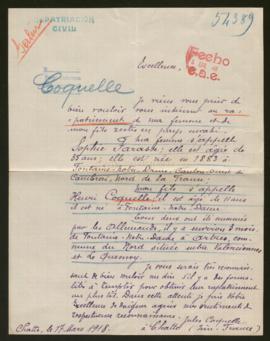 54389
REPATRIACION
CIVIL
Hecho
Excellence,
Coquelle
Je viens vous prier de
bien vouloir vous intéresser au ra-
patriement de ma femme et de
mon fils restés en pays envahi.
Ma femme s'appelle
Sophie ; elle est âgée de
35 ans; elle est née en 1883 à
Fontaine-Notre-Dame, Canton ouest de
Cambrai, Nord de la France.
Mon fils s'appelle
Henri Coquelle; il est âgé de 11 ans
il est né à Fontaine-Notre-Dame.
Tous deux ont été emmenés
par les Allemands, il y a environ 8 mois,
de Fontaine-Notre-Dame à Artres, com-
mune du Nord située entre Valenciennes
et Le Quesnoy.
Je vous serais très reconnais-
sant de bien vouloir me dire s'il y a des forma-
lités à remplir pour obtenir leur rapatriement
au plus tôt. Dans cette attente je prie Votre
Excellence de daigner agréer mes sentiments de
respectueuse reconnaissance.
Jules Coquelle
le 17 Mars 1918.
à (Ain-France)